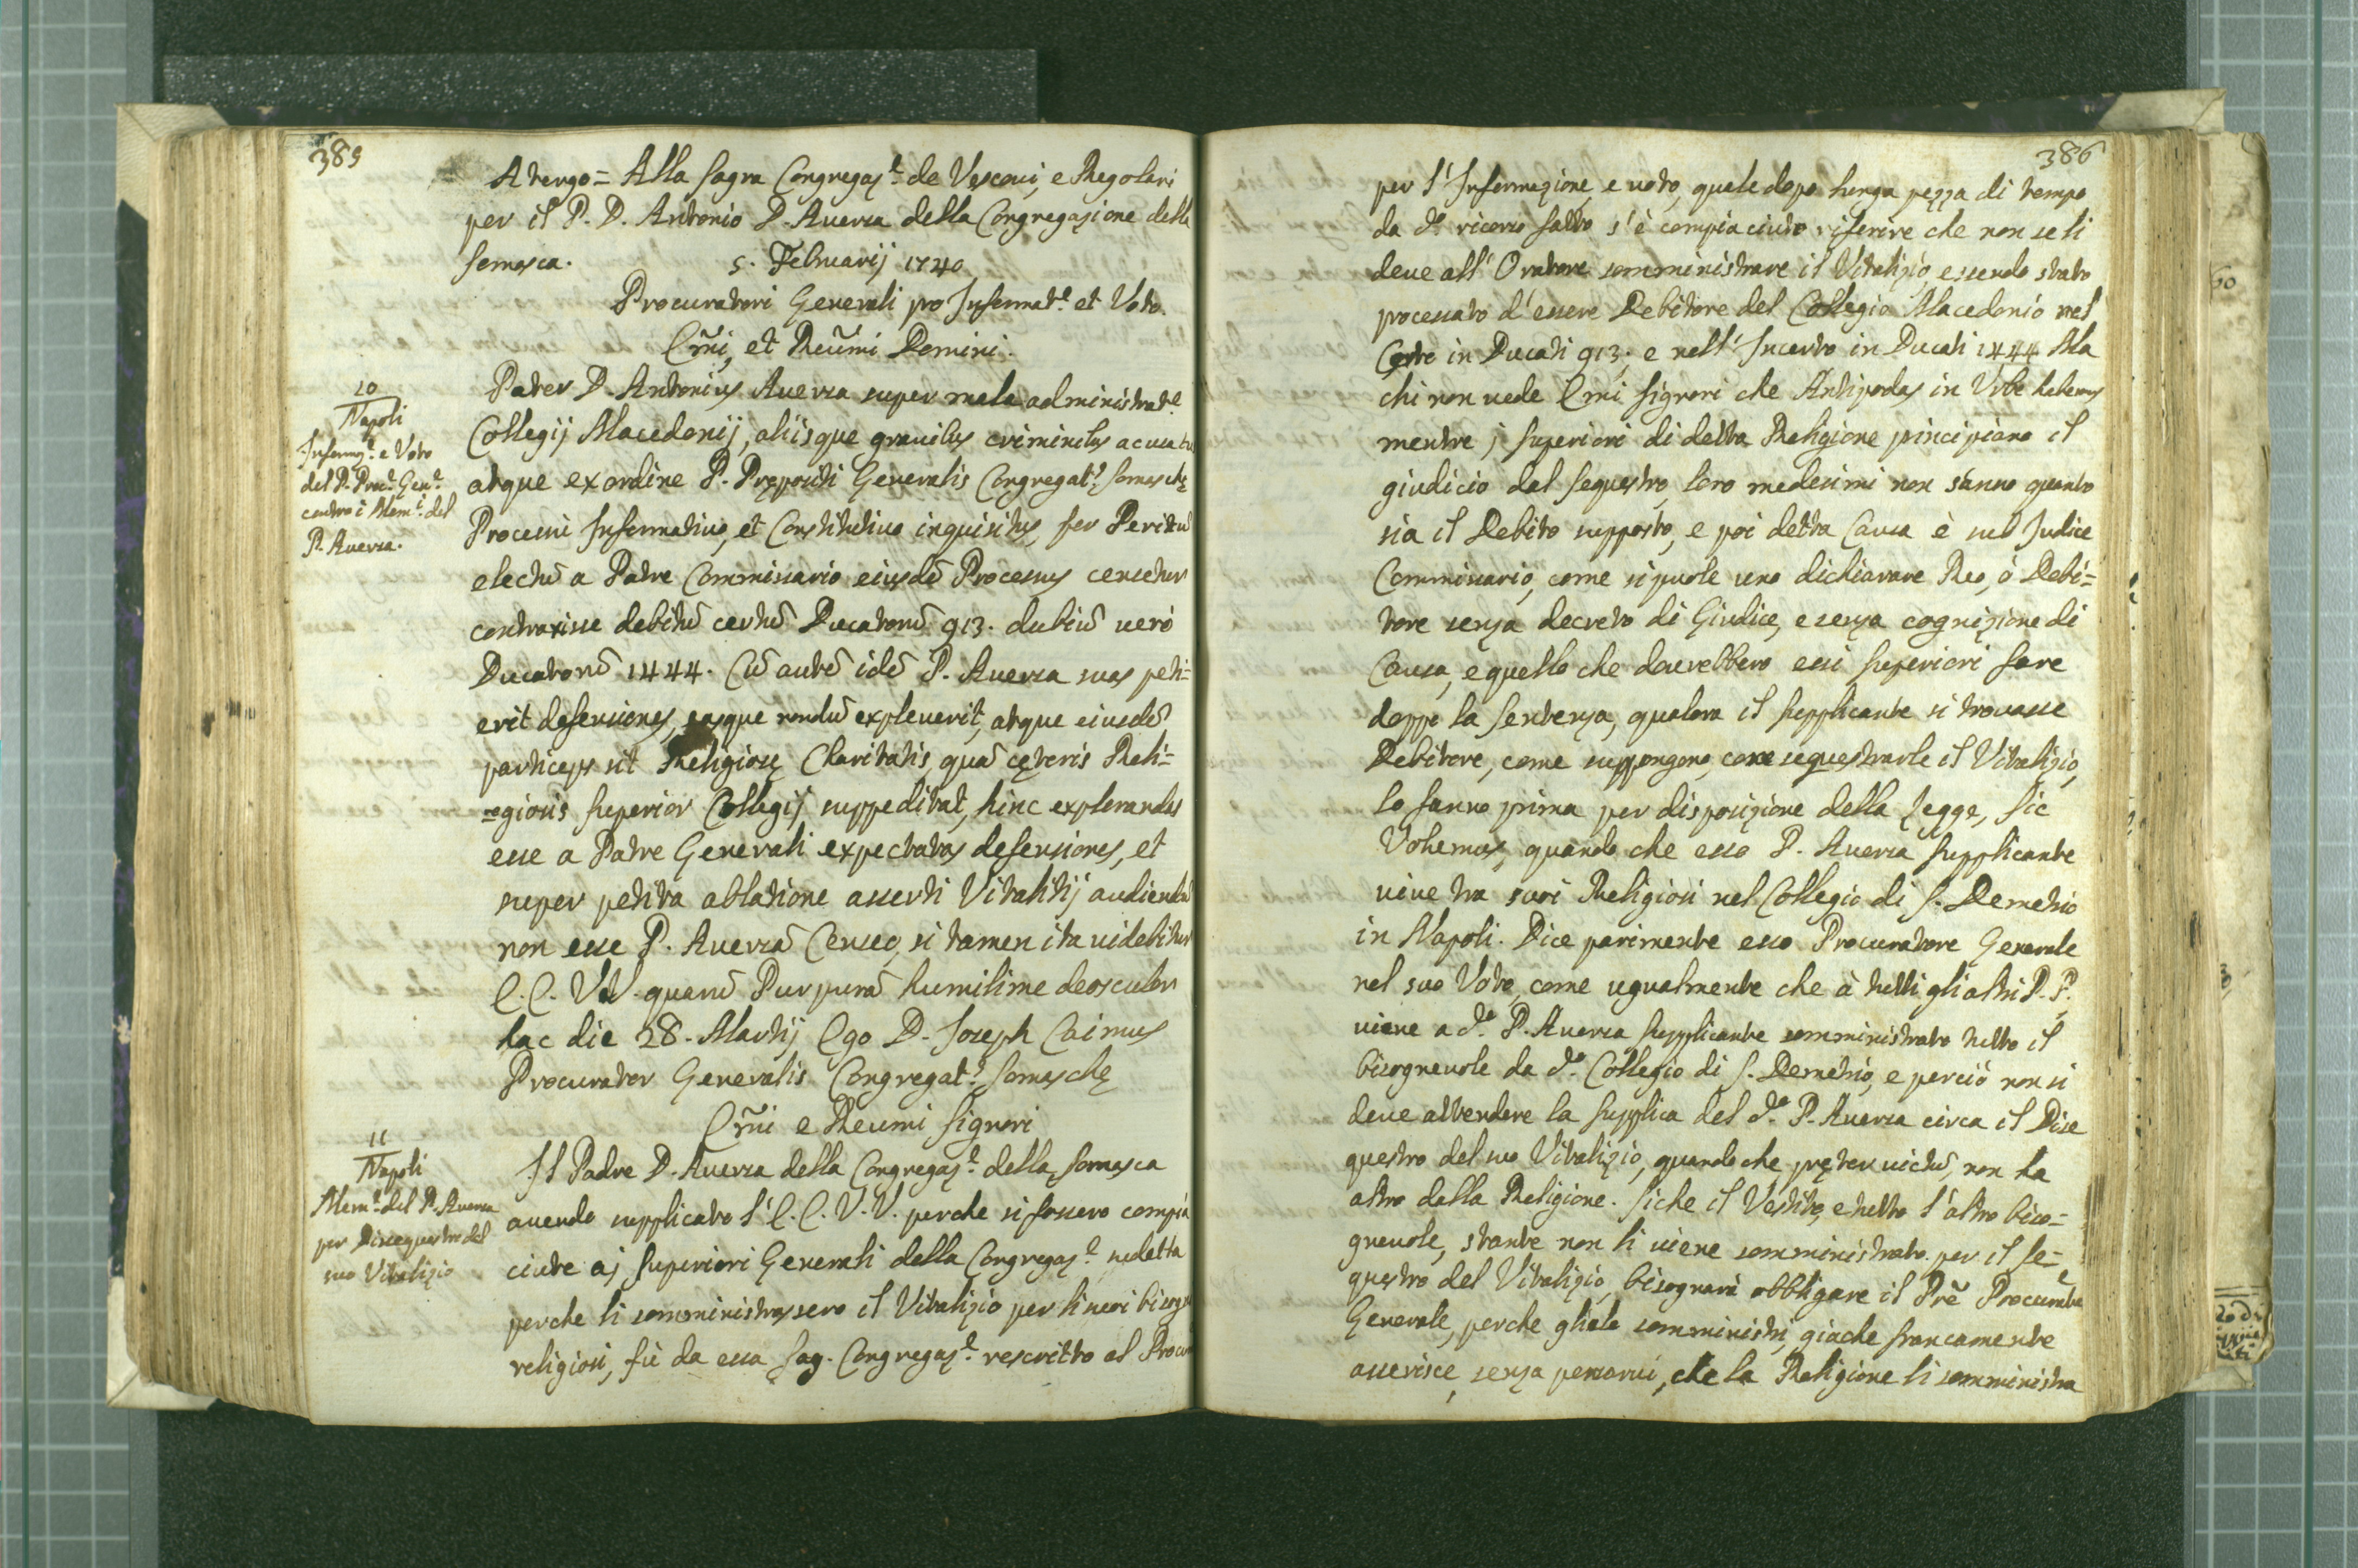 385
A tergo = Alla Sagra Congregaz.e de Vescovi, e Regolari
per il P. D. Antonio D. Auersa della Congregazione della
Somasca. 5. Februarij 1740
Procuratori Generali pro Informat.e et Voto.
Em̃i, et Reum̃i Domini.
10
Napoli
Informaz.e e Voto
del P. Proc.r Gen.le
contro i Mem.li del
P. Auersa.
Pater D. Antonius Auersa super mala administrat.e
Collegij Macedonij, aliisque gravibus criminibus acusatus
atque ex ordine P. Prępositi Generalis Congregat.s Somaschę
Processu Informativo, et Constitutivo inquisitus, per Peritū
electū a Patre Commissario eiusdē Processus censetur
contraxisse debitū certū Ducatorū 913. dubiū verò
Ducatorū 1444. Cū autē idē P. Auersa suas peti=
erit defensiones, easque nondū expleverit, atque eiusdē
particeps sit Religiosę Charitatis, quā cęteris Reli=
=giosis Superior Collegij suppeditat, hinc explorandas
esse a Patre Generali expectatas defensiones, et
super petita ablatione asserti Vitalitij audiendū
non esse P. Auersā Censeo, si tamen ita videbitur
E. E. V.V. quarū Purpurā humilime deosculor
hac die 28. Martij Ego D. Joseph Caimus
Procurator Generalis Congregat.s Somaschę
Em̃i e Reumi Signori
11
Napoli
Mem.le del P. Auersa
per Dissequestro del
suo Vitalizio
Il Padre D. Auersa della Congregaz.e della Somasca
avendo supplicato l'E. E. V. V. perche si fossero compia
ciute aj Superiori Generali della Congregaz.e sudetta
perche li somministrassero il Vitalizio per li suoi bisogni
religiosi, fù da essa Sag. Congregaz.e rescritto al Procur
386
per l'Informazione, e voto, quale dopo lunga pezza di tempo
da d.o ricorso fatto s'è compiaciuto riferire che non se li
deve all'Oratore somministrare il Vitalizio, essendo stato
processato d'essere Debitore del Collegio Macedonio nel
Certo in Ducati 913. e nell'Incerto in Ducati 1444 Ma
chi non vede Emi Signori che Antipodas in Urbe habemus
mentre j Superiori di detta Religione principiano il
giudicio dal sequestro, loro medesimi non sanno quanto
sia il Debito supposto, e poi detta Causa è sub Judice
Commissario, come si puole uno dichiarare Reo, ò Debi=
tore senza decreto di Giudice, e senza cognizione di
Causa, e quello che dovrebbero essi Superiori fare
doppo la sentenza, qualora il supplicante si trovasse
Debitore, come suppongono, come sequestrarle il Vitalizio,
lo fanno prima per disposizione della legge, Sic
Volumus, quando che esso P. Auersa supplicante
vive tra suoi Religiosi nel Collegio di S. Demetrio
in Napoli. Dice parimente esso Procuratore Generale
nel suo Voto, come ugualmente che à tutti gli altri P. P.
viene a d.o P. Auersa supplicante somministrato tutto il
bisognevole da d.o Collegio di S. Demetrio, e perciò non si
deve attendere la supplica del d.o P. Auersa circa il Disse
questro del suo Vitalizio, quando che pręter victū, non ha
altro dalla Religione. Siche il Vestito, e tutto l'altro biso=
gnevole, stante non li viene somministrato per il Se=
questro del Vitalizio, bisognarà obbligare il Prē Procurante
Generale, perche gliele somministri, giache francamente
asserisce, senza pensarvi, che la Religione li somministra